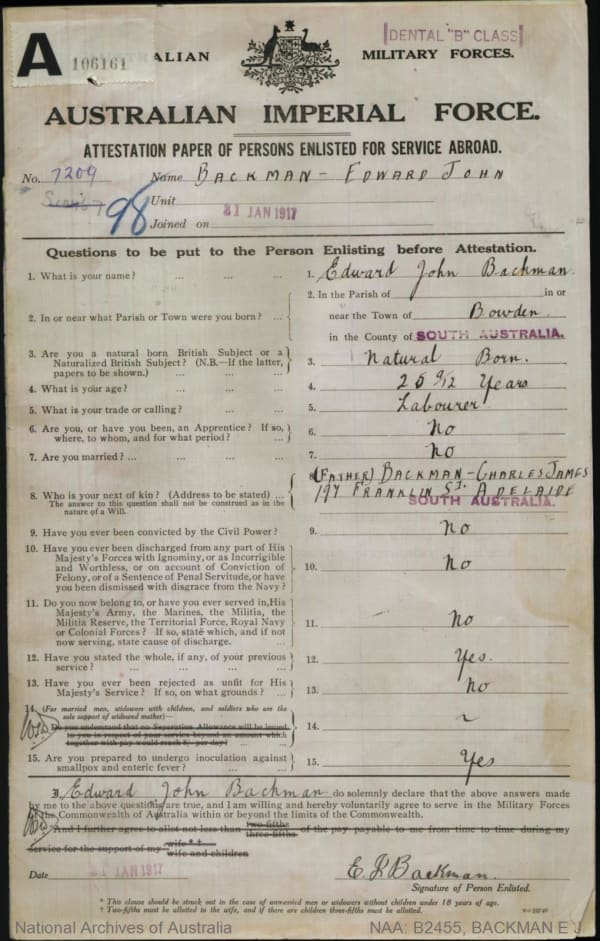 A 106161
DENTAL "B" CLASS
ALIAN MILITARY FORCES.
AUSTRALIAN IMPERIAL FORCE.
ATTESTATION PAPER OF PERSONS ENLISTED FOR SERVICE ABROAD.
No. 7209 Name BACKMAN - EDWARD JOHN
98 Unit
Joined on 31 JAN 1917
Questions to be put to the Person Enlisting before Attestation.
1. What is your name? ... ... ... 1. Edward John Backman.
2. In the Parish of in or
2. In or near what Parish or Town were you born? ... near the Town of Bowden.
in the County of SOUTH AUSTRALIA.
3. Are you a natural born British Subject or a
Naturalized British Subject? (N.B.—If the latter,
papers to be shown.) ... ... 3. Natural Born.
4. What is your age? ... ... ... 4. 25 9/12 Years
5. What is your trade or calling? ... ... 5. Labourer
6. Are you, or have you been, an Apprentice? If so,
where, to whom, and for what period? ... 6. No
7. Are you married? ... ... ... ... 7. No
8. (FATHER) BACKMAN - CHARLES JAMES
197 FRANKLIN ST. ADELAIDE
8. Who is your next of kin? (Address to be stated) ... SOUTH AUSTRALIA.
The answer to this question shall not be construed as in the
nature of a Will.
9. Have you ever been convicted by the Civil Power? 9. No
10. Have you ever been discharged from any part of His
Majesty's Forces with Ignominy, or as Incorrigible
and Worthless, or on account of Conviction of
Felony, or of a Sentence of Penal Servitude, or have
you been dismissed with disgrace from the Navy? 10. No
11. Do you now belong to, or have you ever served in, His
Majesty's Army, the Marines, the Militia, the
Militia Reserve, the Territorial Force, Royal Navy
or Colonial Forces? If so, state which, and if not
now serving, state cause of discharge. ... 11. No
12. Have you stated the whole, if any, of your previous
service? ... ... ... ... 12. Yes.
13. Have you ever been rejected as unfit for His
Majesty's Service? If so, on what grounds? ... 13. No
14. (For married men, widowers with children, and soldiers who are the
sole support of widowed mother)—
Do you understand that no Separation Allowance will be issued
to you in respect of your service beyond an amount which
together with pay would reach 8/- per day? ... ... 14. ~
15. Are you prepared to undergo inoculation against
smallpox and enteric fever? ... ... 15. Yes
I, Edward John Backman do solemnly declare that the above answers made
by me to the above questions are true, and I am willing and hereby voluntarily agree to serve in the Military Forces
of the Commonwealth of Australia within or beyond the limits of the Commonwealth.
And I further agree to allot not less than two-fifths three-fifths of the pay payable to me from time to time during my
service for the support of my wife * † wife and children
Date 31 JAN 1917 E. J. Backman.
Signature of Person Enlisted.
* This clause should be struck out in the case of unmarried men or widowers without children under 18 years of age.
† Two-fifths must be allotted to the wife, and if there are children three-fifths must be allotted.
National Archives of Australia NAA: B2455, BACKMAN E J